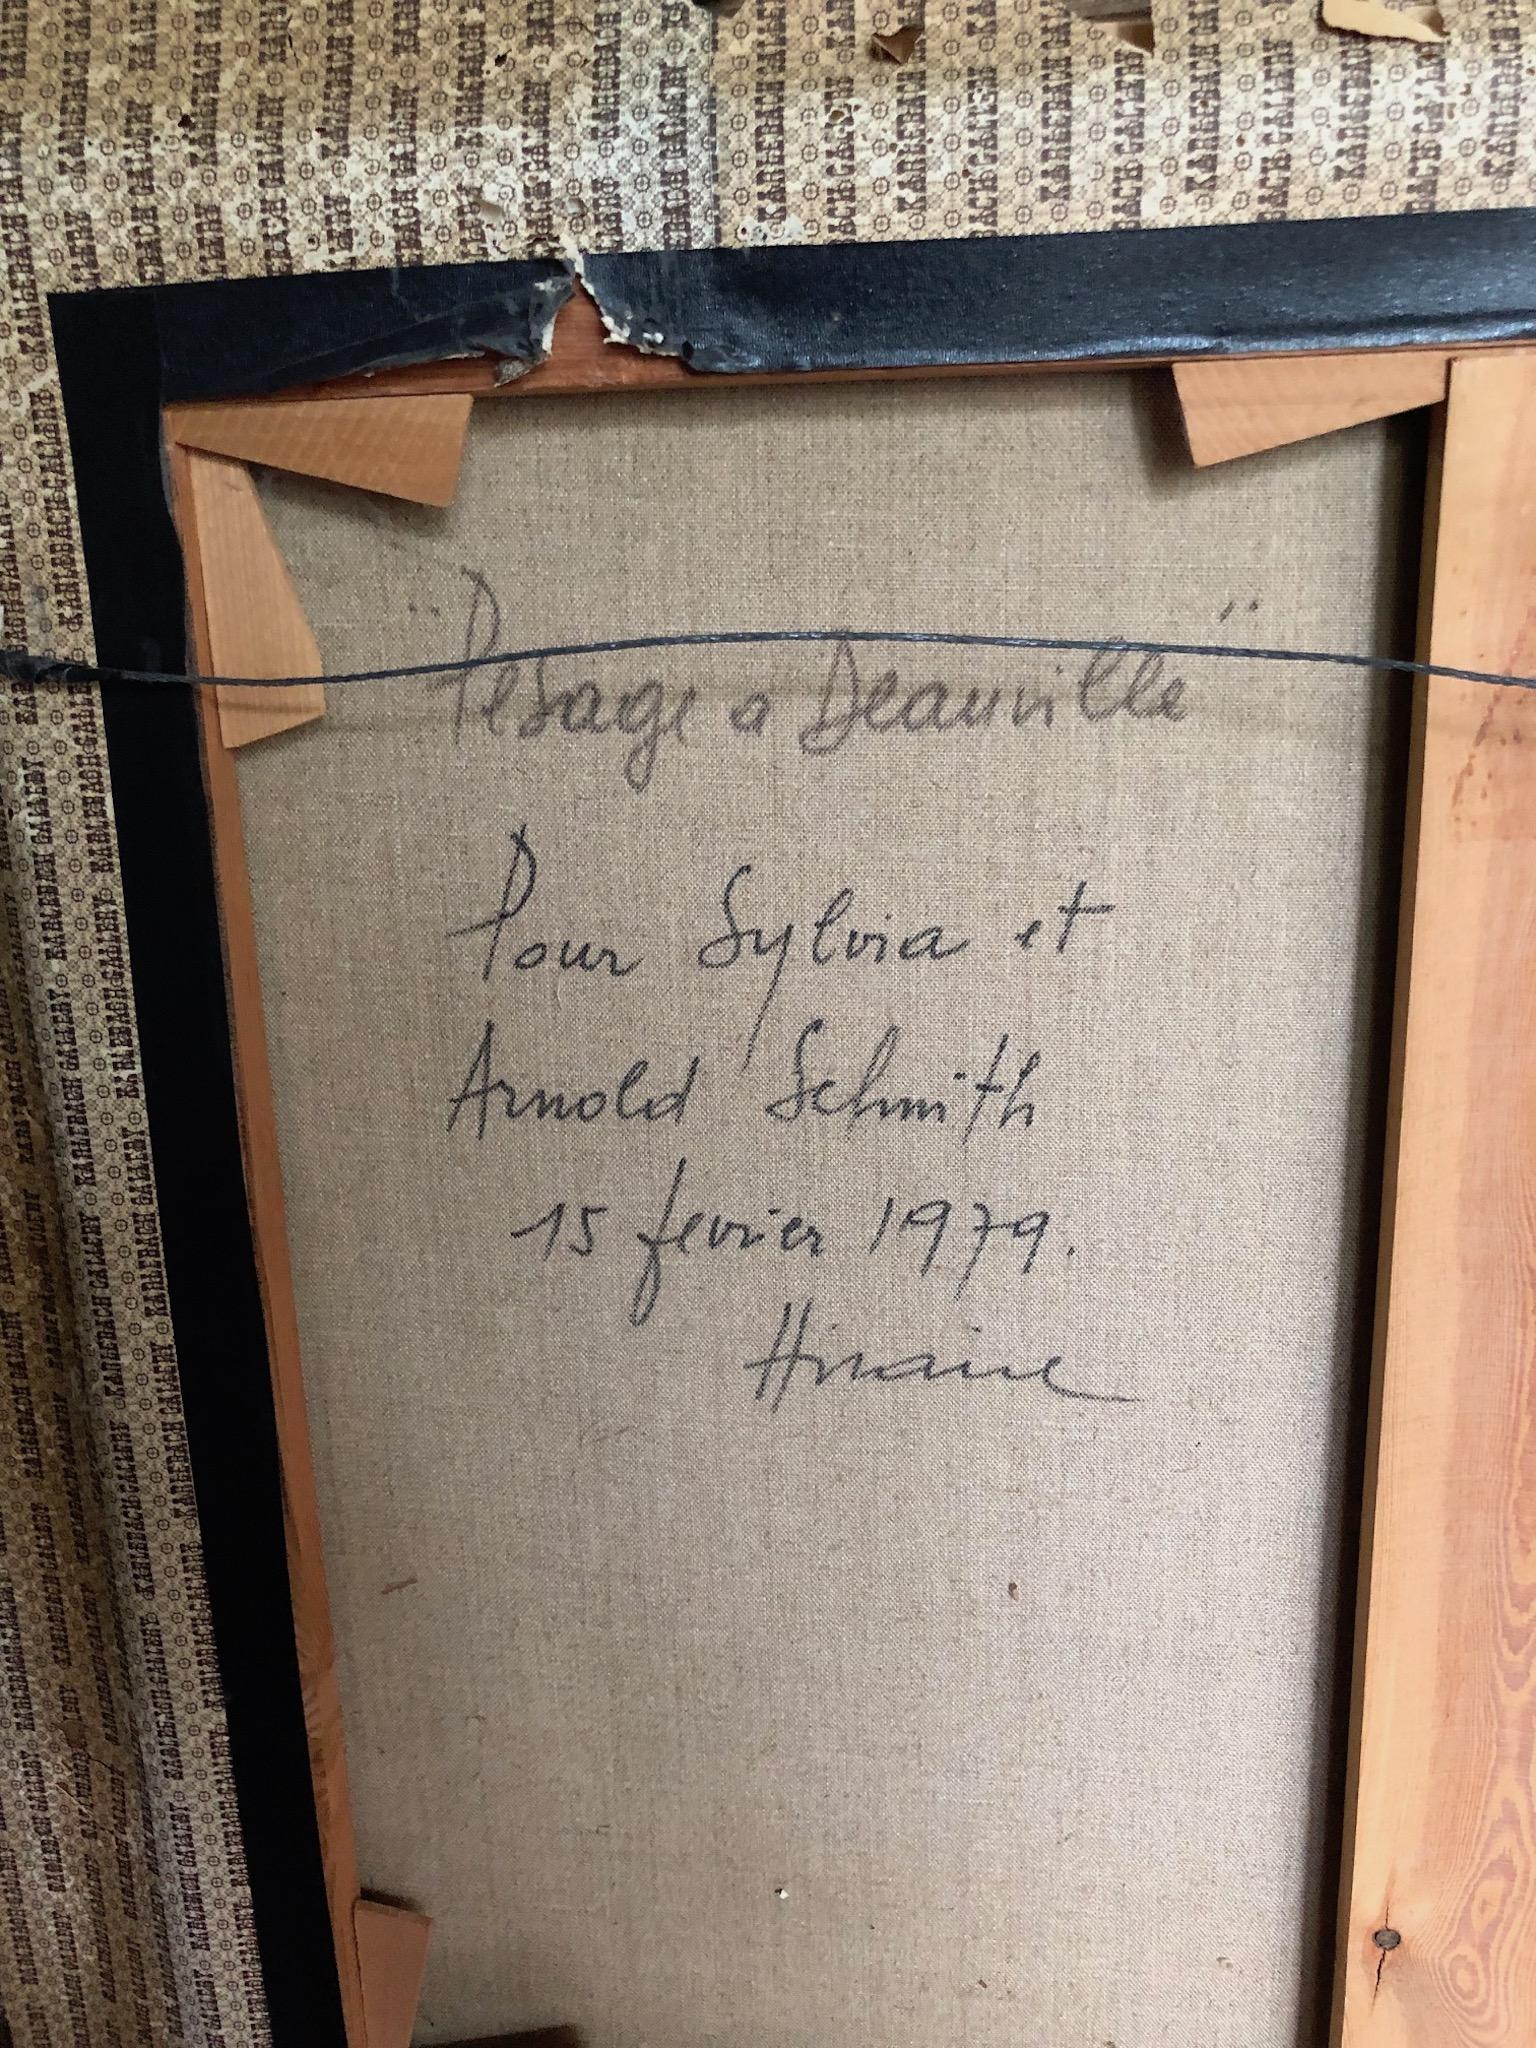 KARLEBACH GALLERY
"Pesage a Deauville"
Pour Sylvia et
Arnold Schmith
15 fevrier 1979.